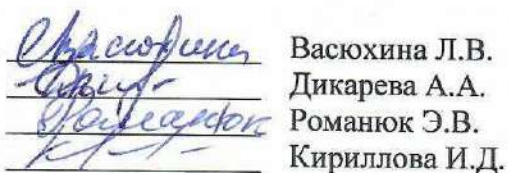 Васюхина Л.В.
Дикарева А.А.
Романюк Э.В.
Кириллова И.Д.